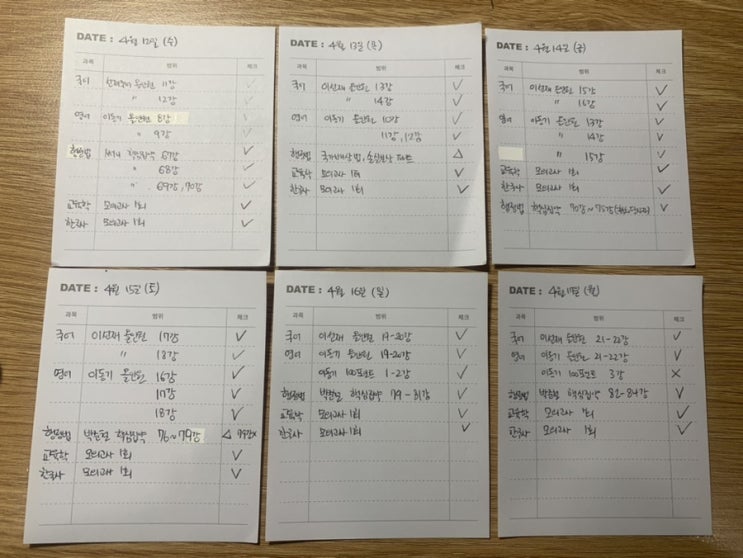 DATE : 4월 12일 (수)
과목 범위 체크
국어 선재국어 올인원 11강 ✓
〃 12강 ✓
영어 이동기 올인원 8강 ✓
〃 9강 ✓
행정법 써니 핵심집약 67강 ✓
〃 68강 ✓
〃 69강, 70강 ✓
교육학 모의고사 1회 ✓
한국사 모의고사 1회 ✓
DATE : 4월 13일 (목)
과목 범위 체크
국어 이선재 올인원 13강 ✓
〃 14강 ✓
영어 이동기 올인원 10강 ✓
11강, 12강 ✓
행정법 국가배상법, 손실보상 △
교육학 모의고사 1회 ✓
한국사 모의고사 1회 ✓
DATE : 4월 14일 (금)
과목 범위 체크
국어 이선재 올인원 15강 ✓
〃 16강 ✓
영어 이동기 올인원 13강 ✓
〃 14강 ✓
〃 15강 ✓
교육학 모의고사 1회 ✓
한국사 모의고사 1회 ✓
행정법 핵심집약 70강~75강 ✓
DATE : 4월 15일 (토)
과목 범위 체크
국어 이선재 올인원 17강 ✓
〃 18강 ✓
영어 이동기 올인원 16강 ✓
17강 ✓
18강 ✓
행정법 박준철 핵심집약 76~79강 △ 79강x
교육학 모의고사 1회 ✓
한국사 모의고사 1회 ✓
DATE : 4월 16일 (일)
과목 범위 체크
국어 이선재 올인원 19-20강 ✓
영어 이동기 올인원 19-20강 ✓
이동기 100포인트 1-2강 ✓
행정법 박준철 핵심집약 79-81강 ✓
교육학 모의고사 1회 ✓
한국사 모의고사 1회 ✓
DATE : 4월 17일 (월)
과목 범위 체크
국어 이선재 올인원 21-22강 ✓
영어 이동기 올인원 21-22강 ✓
이동기 100포인트 3강 ×
행정법 박준철 핵심집약 82-84강 ✓
교육학 모의고사 1회 ✓
한국사 모의고사 1회 ✓